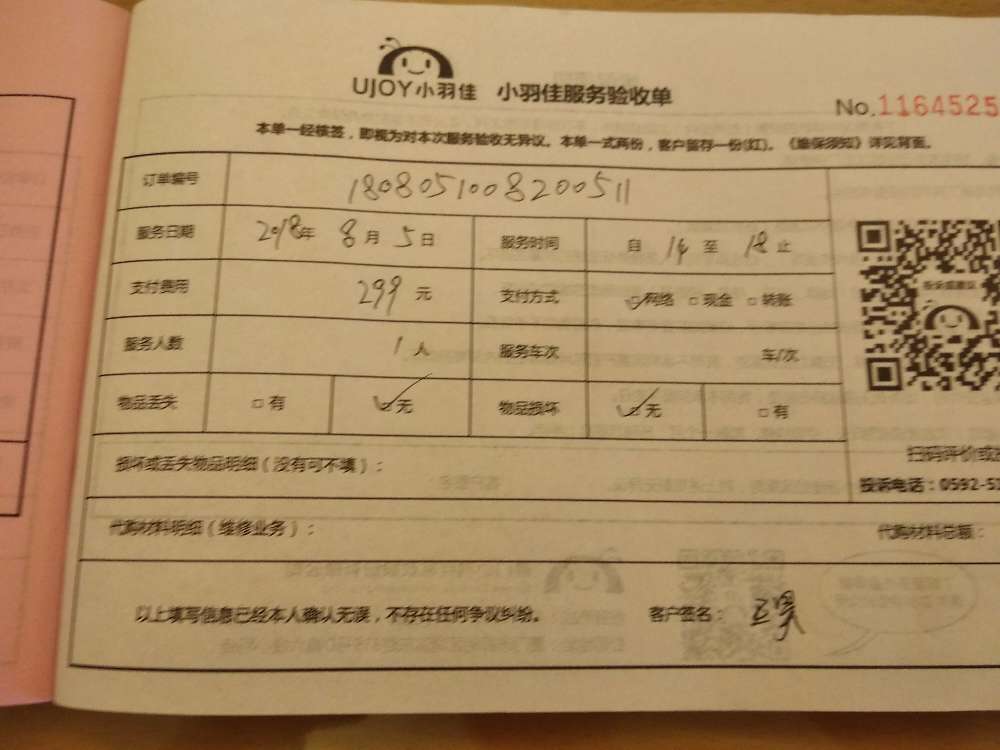 UJOY小羽佳 小羽佳服务验收单
No.1164525
本单一经核签，即视为对本次服务验收无异议。本单一式两份，客户留存一份(红)。《维保须知》详见背面。
订单编号 1808051008200511
服务日期 2018年 8月 5日 服务时间 自 14 至 18 止
支付费用 299 元 支付方式 ☑网络 □现金 □转账
服务人数 1人 服务车次 车/次
物品丢失 □有 ☑无 物品损坏 ☑无 □有
损坏或丢失物品明细（没有可不填）：
扫码评价或
投诉电话：0592-51
代购材料明细（维修业务）： 代购材料总额：
以上填写信息已经本人确认无误，不存在任何争议纠纷。 客户签名：